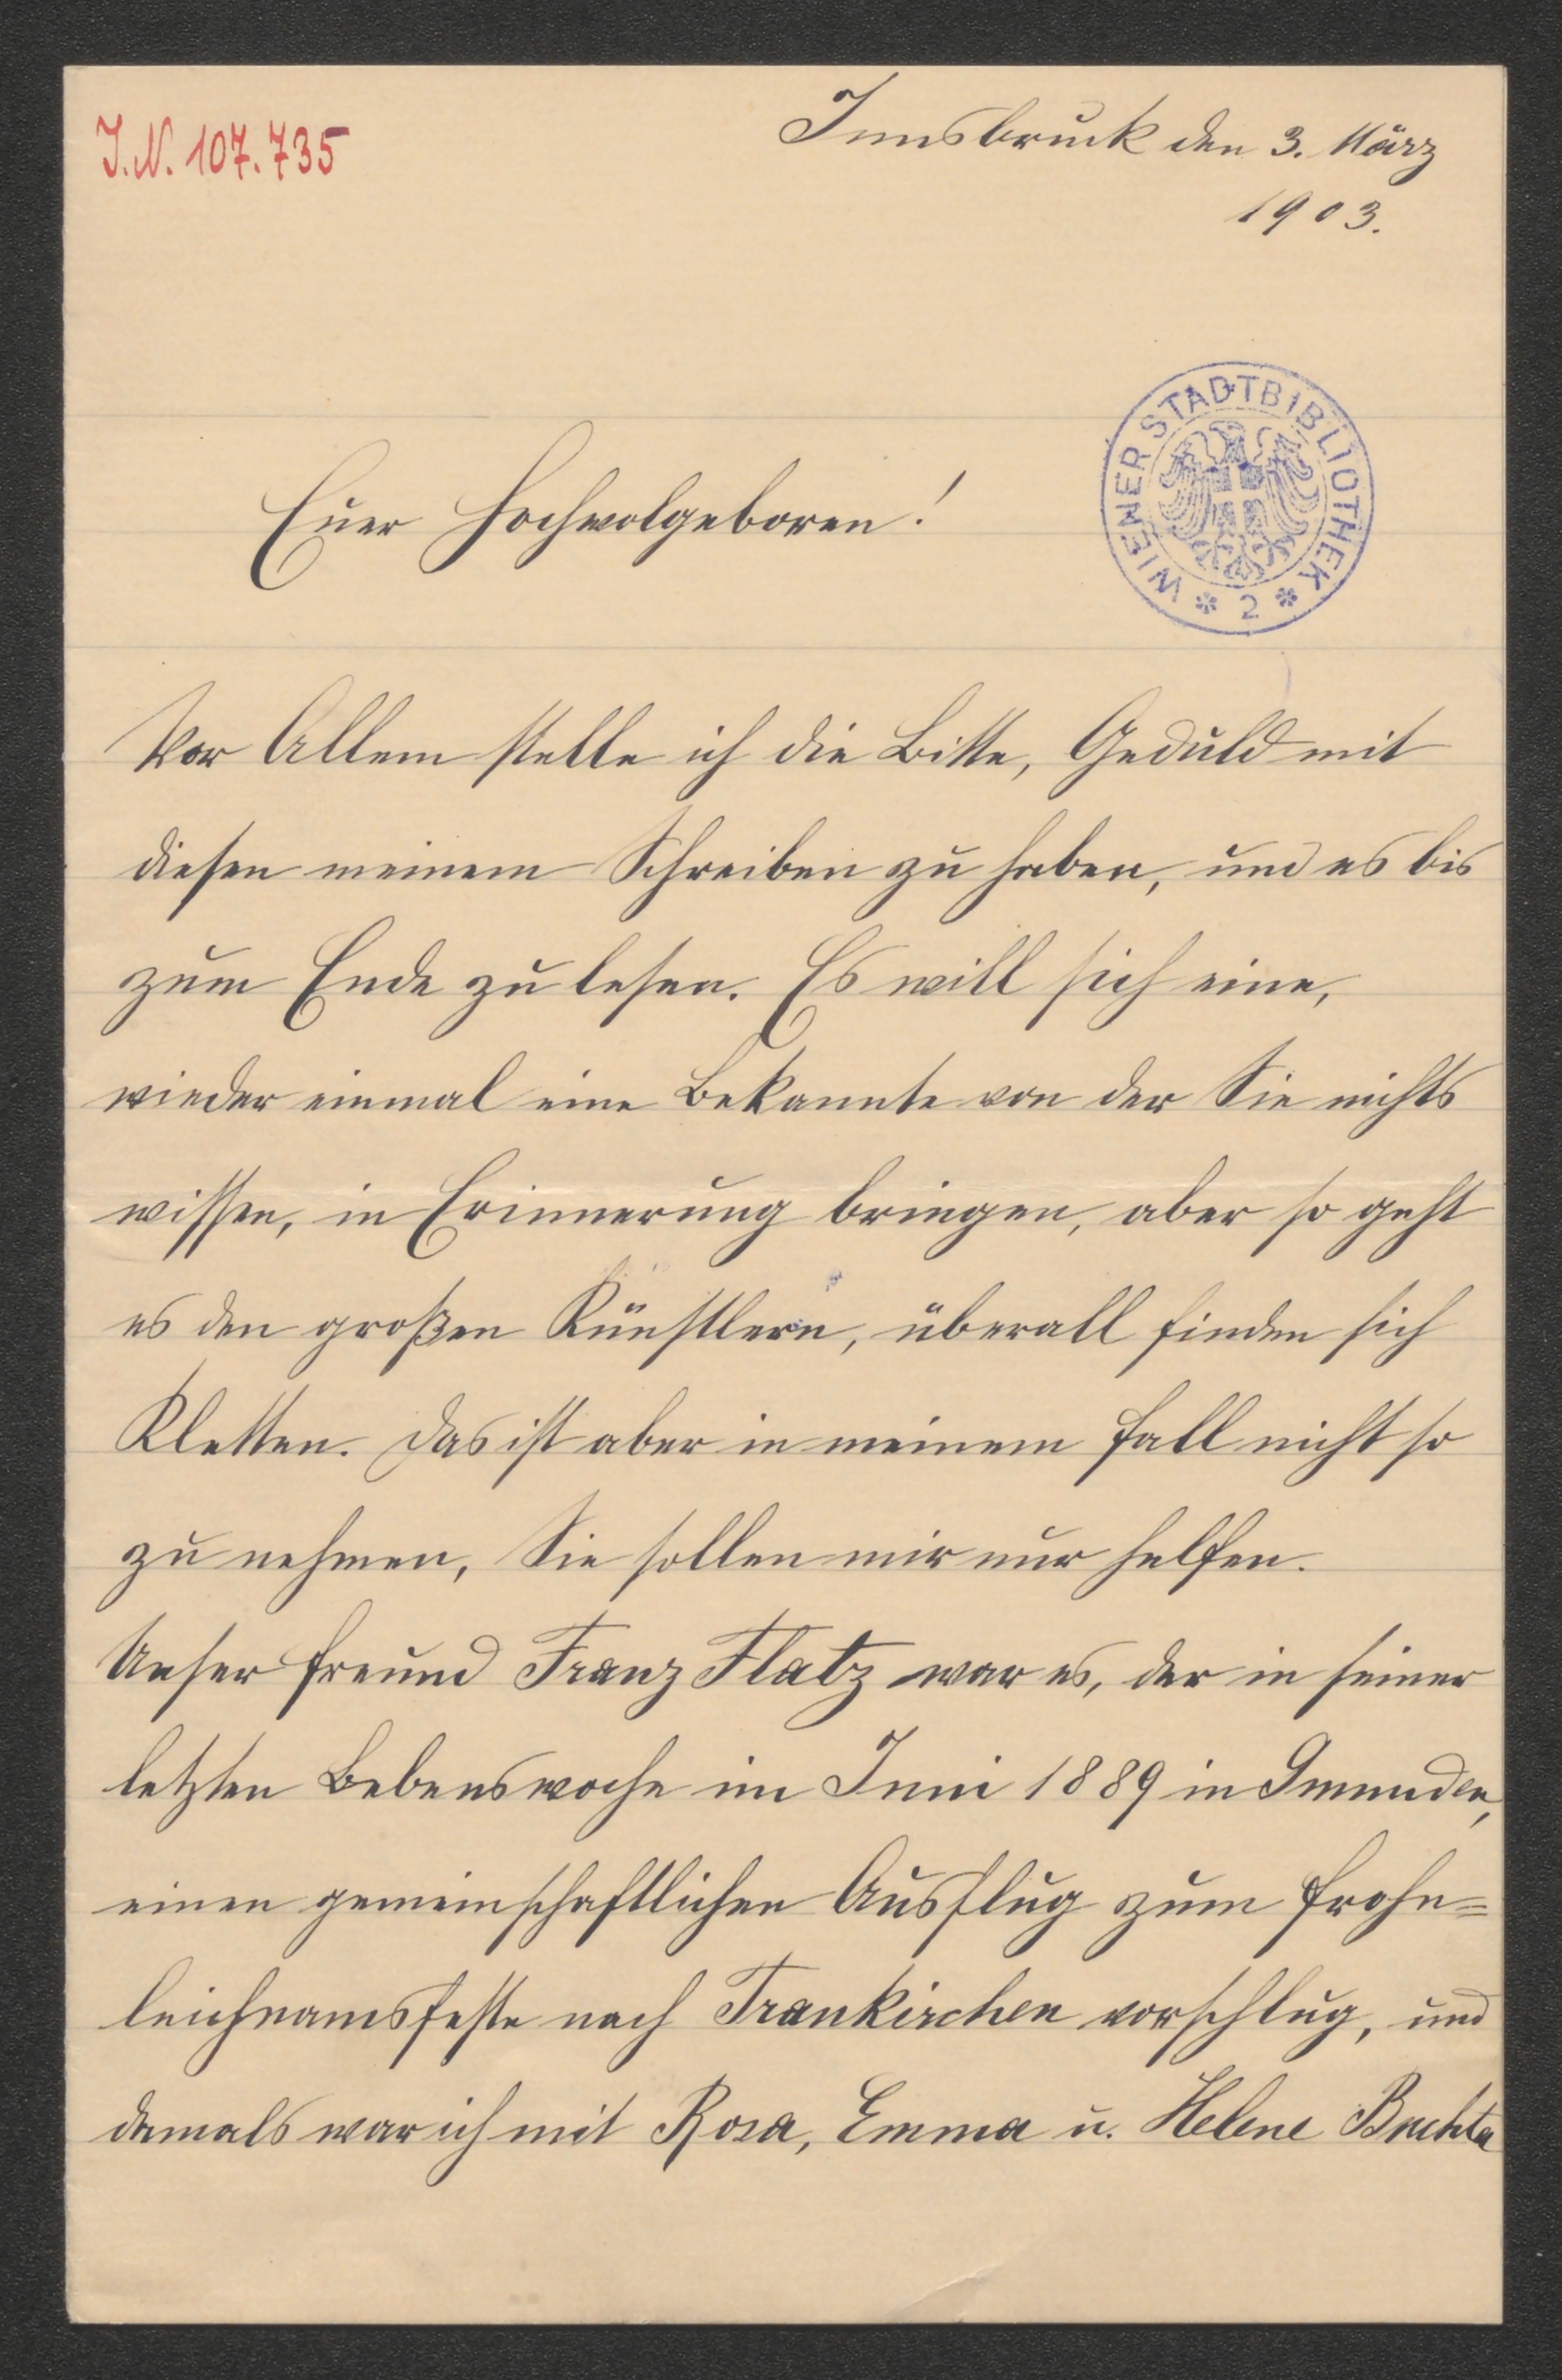 J.N. 107.735
Innsbruck den 3. März
1903.
WIENER STADTBIBLIOTHEK
* 2 *
Euer Hochwolgeboren!
Vor Allem stelle ich die Bitte, Geduld mit
diesen meinem Schreiben zu haben, und es bis
zum Ende zu lesen. Es will sich eine,
wieder einmal eine Bekannte von der Sie nichts
wissen, in Erinnerung bringen, aber so geht
es den großen Künstlern, überall finden sich
Kletten. Das ist aber in meinem Fall nicht so
zu nehmen, Sie sollen mir nur helfen.
Unser Freund Franz Flatz war es, der in seiner
letzten Lebenswoche im Juni 1889 in Gmunden,
einen gemeinschaftlichen Ausflug zum Frohn=
leichnamsfeste nach Traunkirchen vorschlug, und
damals war ich mit Rosa, Emma u. Helene